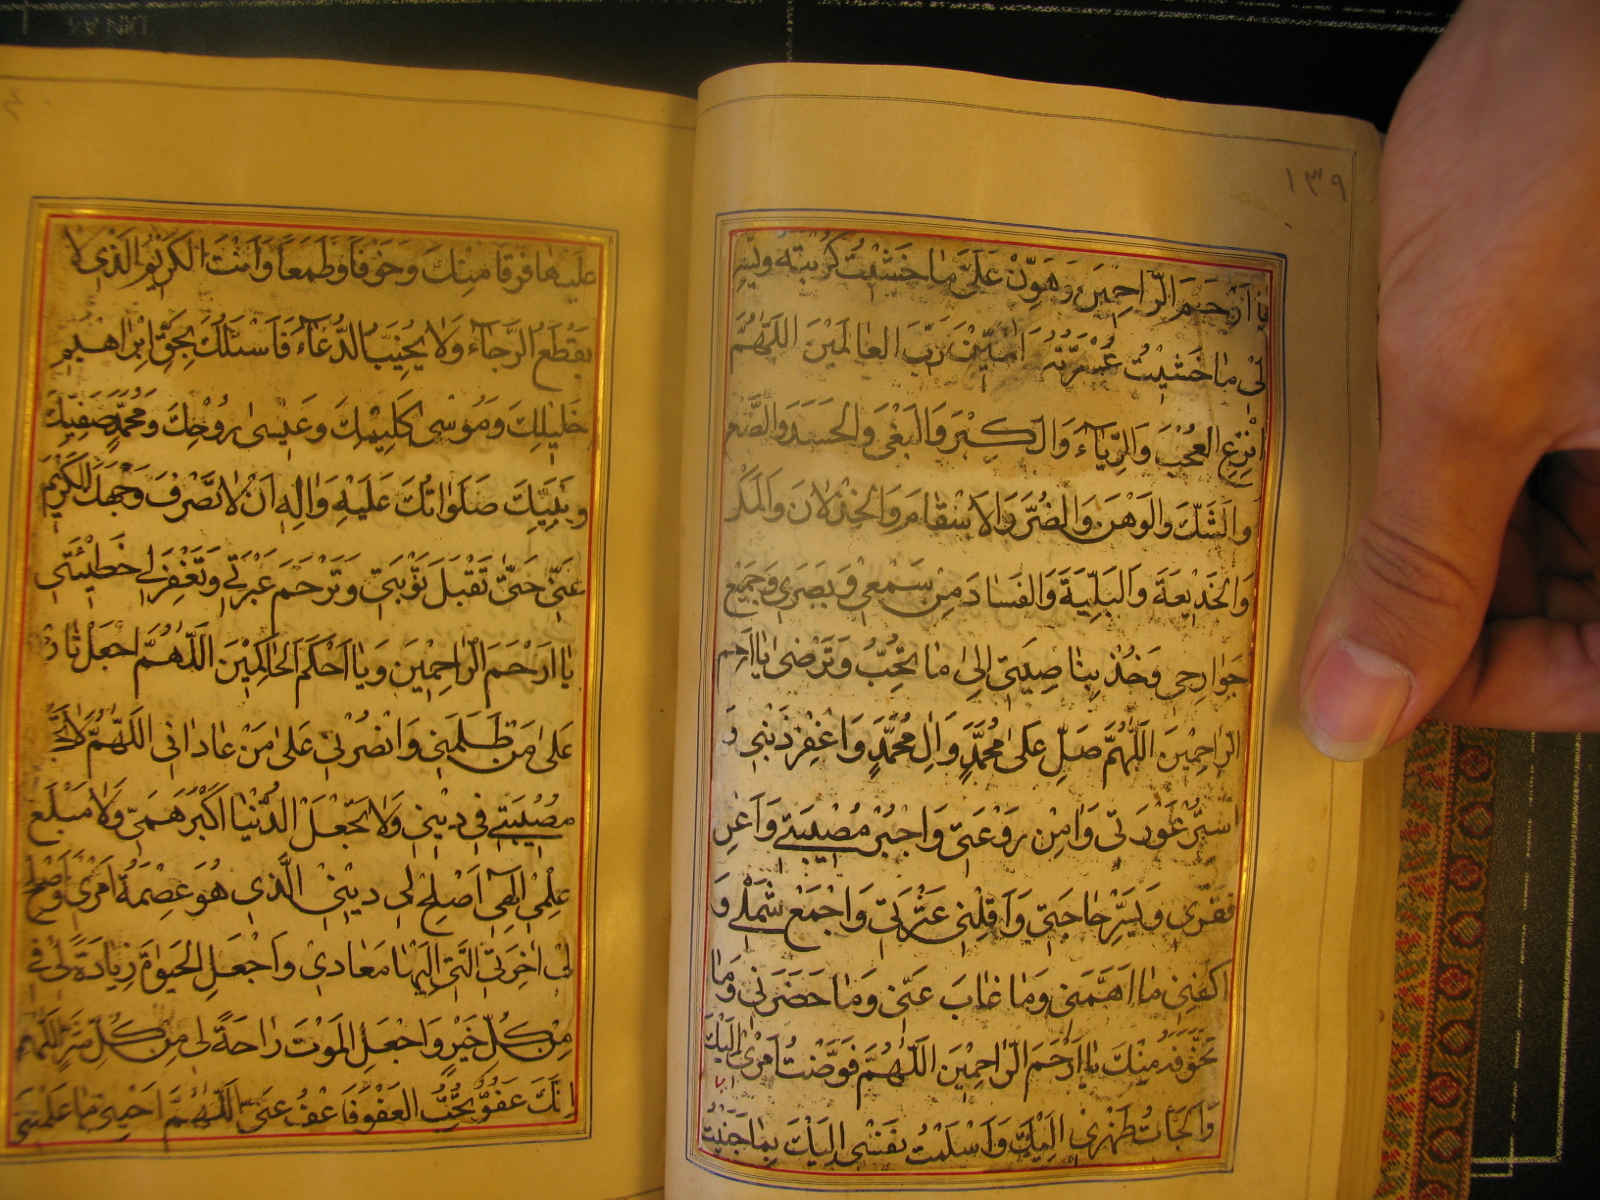 ١٣٩
يا اَرْحَمَ الرّاحِمينَ وَهَوِّنْ عَلَىَّ ما خَشيْتُ كُرْبَتَهُ وَيَسِّرْ
لى ما خَشيْتُ عُسْرَتَهُ امينَ رَبَّ العالَمينَ اللّهُمَّ
انْزِعِ العُجْبَ وَالرِّياءَ وَالكِبْرَ وَالبَغْىَ وَالحَسَدَ وَالضَّعْفَ
وَالشَّكَّ وَالوَهْنَ وَالضُّرَّ وَالاَسْقامَ وَالخِذْلانَ وَالمَكْرَ
وَالخَديْعَةَ وَالبَلِيَّةَ وَالفَسادَ مِنْ سَمْعي وَبَصَري وَجَميْعِ
جَوارِحي وَخُذْ بِناصِيَتي اِلى ما تُحِبُّ وَتَرْضى يا اَرْحَمَ
الرّاحِمينَ اللّهُمَّ صَلِّ عَلى مُحَمَّدٍ وَالِ مُحَمَّدٍ وَاغْفِرْ ذَنْبي وَ
اسْتُرْ عَوْرَتي وَامِنْ رَوْعَتي وَاجْبُرْ مُصيْبَتي وَاَغْنِ
فَقْري وَيَسِّرْ حاجَتي وَاَقِلْني عَثْرَتي وَاجْمَعْ شَمْلي وَ
اكْفِني ما اَهَمَّني وَما غابَ عَنّي وَما حَضَرَني وَما
تَخَوَّفُهُ مِنْكَ يا اَرْحَمَ الرّاحِمينَ اللّهُمَّ فَوَّضْتُ اَمْري اِلَيْكَ
وَاَلْجَأْتُ ظَهْري اِلَيْكَ وَاَسْلَمْتُ نَفْسي اِلَيْكَ بِما جَنَيْتُ
عَلَيْها فَرَقا مِنْكَ وَخَوْفاً وَطَمَعاً وَاَنْتَ الكَريْمُ الَّذي لا
يَقْطَعُ الرَّجاءَ وَلا يُخيْبُ الدُّعاءَ فَاَسْئَلُكَ بِحَقِّ اِبْراهيْمَ
خَليْلِكَ وَمُوْسى كَليْمِكَ وَعيْسى رُوْحِكَ وَمُحَمَّدٍ صَفِيِّكَ
وَنَبِيِّكَ صَلَواتُكَ عَلَيْهِ وَالِهِ اَنْ لا تَصْرِفَ وَجْهَكَ الكَريْمَ
عَنّي حَتّى تَقْبَلَ تَوْبَتي وَتَرْحَمَ عَبْرَتي وَتَغْفِرَ لي خَطيْئَتي
يا اَرْحَمَ الرّاحِمينَ وَيا اَحْكَمَ الحاكِمينَ اللّهُمَّ اجْعَلْ ثارْ
عَلى مَنْ ظَلَمَني وَانْصُرْني عَلى مَنْ عاداني اللّهُمَّ لا تَجْ
مُصيْبَتي في ديْني وَلا تَجْعَلْ الدُّنْيا اَكْبَرَ هَمّي وَلا مَبْلَغَ
عِلْمي اِلهي اَصْلِحْ لي ديْني الَّذي هُوَ عِصْمَةُ اَمْري وَاَصْلِحْ
لي اخِرَتي الَّتي اِلَيْها مَعادي وَاجْعَلِ الحَيوةَ زِيادَةً لي في
مِنْ كُلِّ خَيْرٍ وَاجْعَلِ المَوْتَ راحَةً لي مِنْ كُلِّ شَرٍّ اللّهُمَّ
اِنَّكَ عَفُوٌّ تُحِبُّ العَفْوَ فَاعْفُ عَنّي اللّهُمَّ اَحْيِني ما عَلِمْتَ